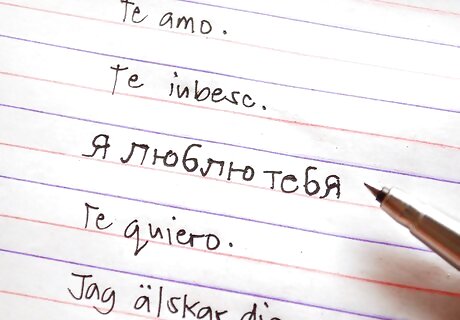 Te amo.
Te iubesc.
Я люблю тебя
Te quiero.
Jag älskar dig